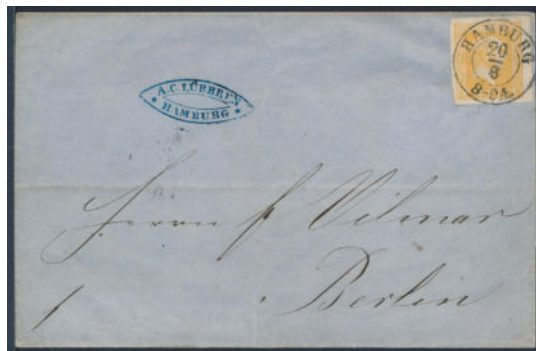 HAMBURG
20
8
8-9A.
A.C. LÜBBREN
* HAMBURG *
Herrn f Vilmar
Berlin